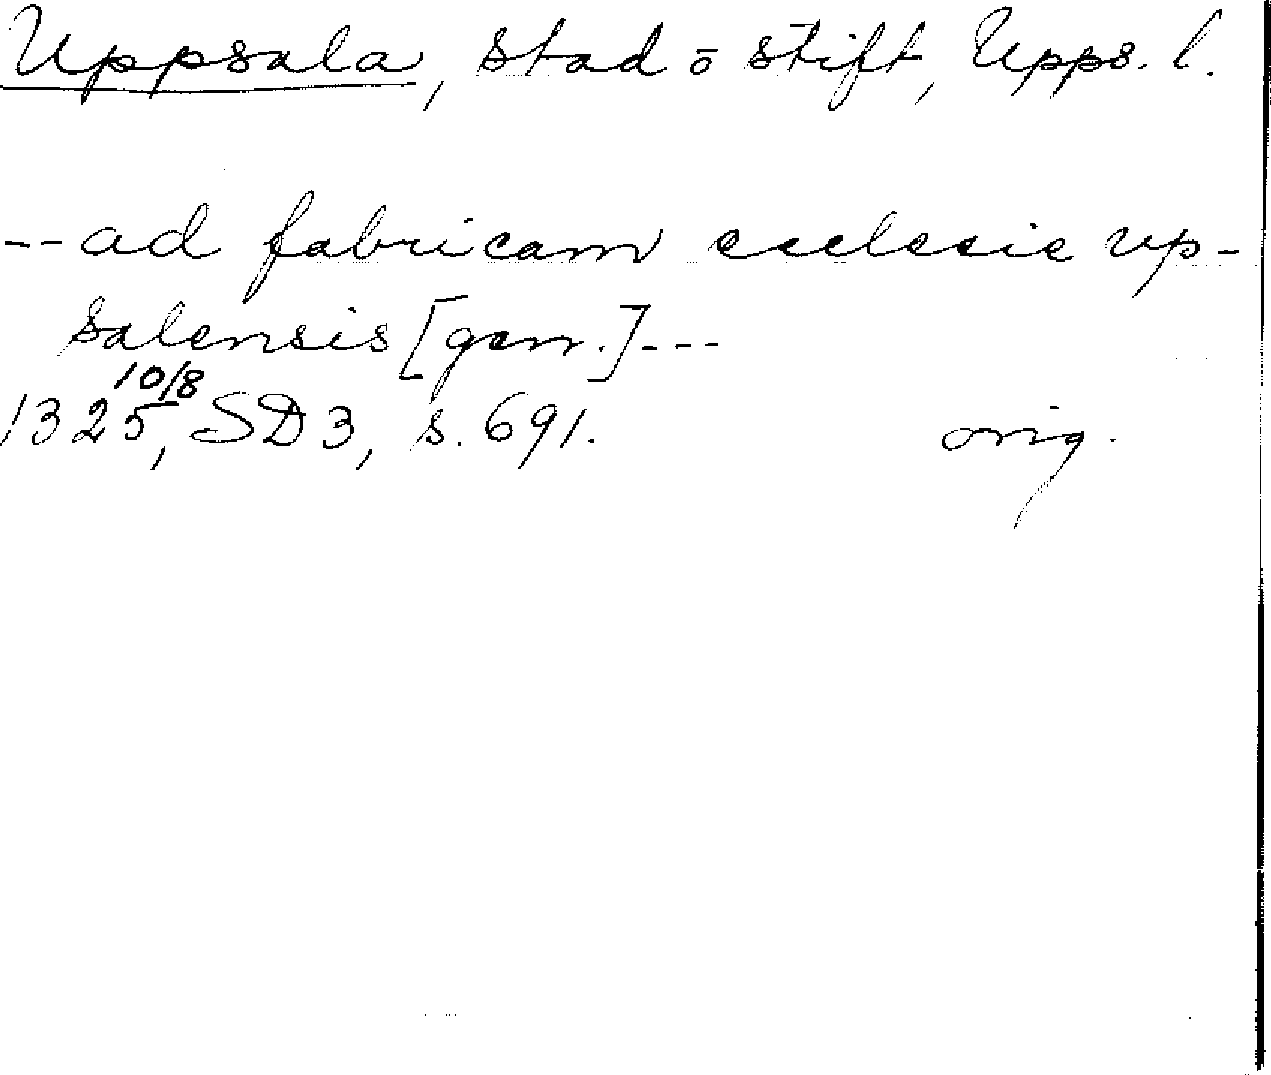 Uppsala, stad o stift, Upps. l.
-- ad fabricam ecclesie vp-
salensis [gen.] ---
10/8
1325, SD 3, s. 691. orig.